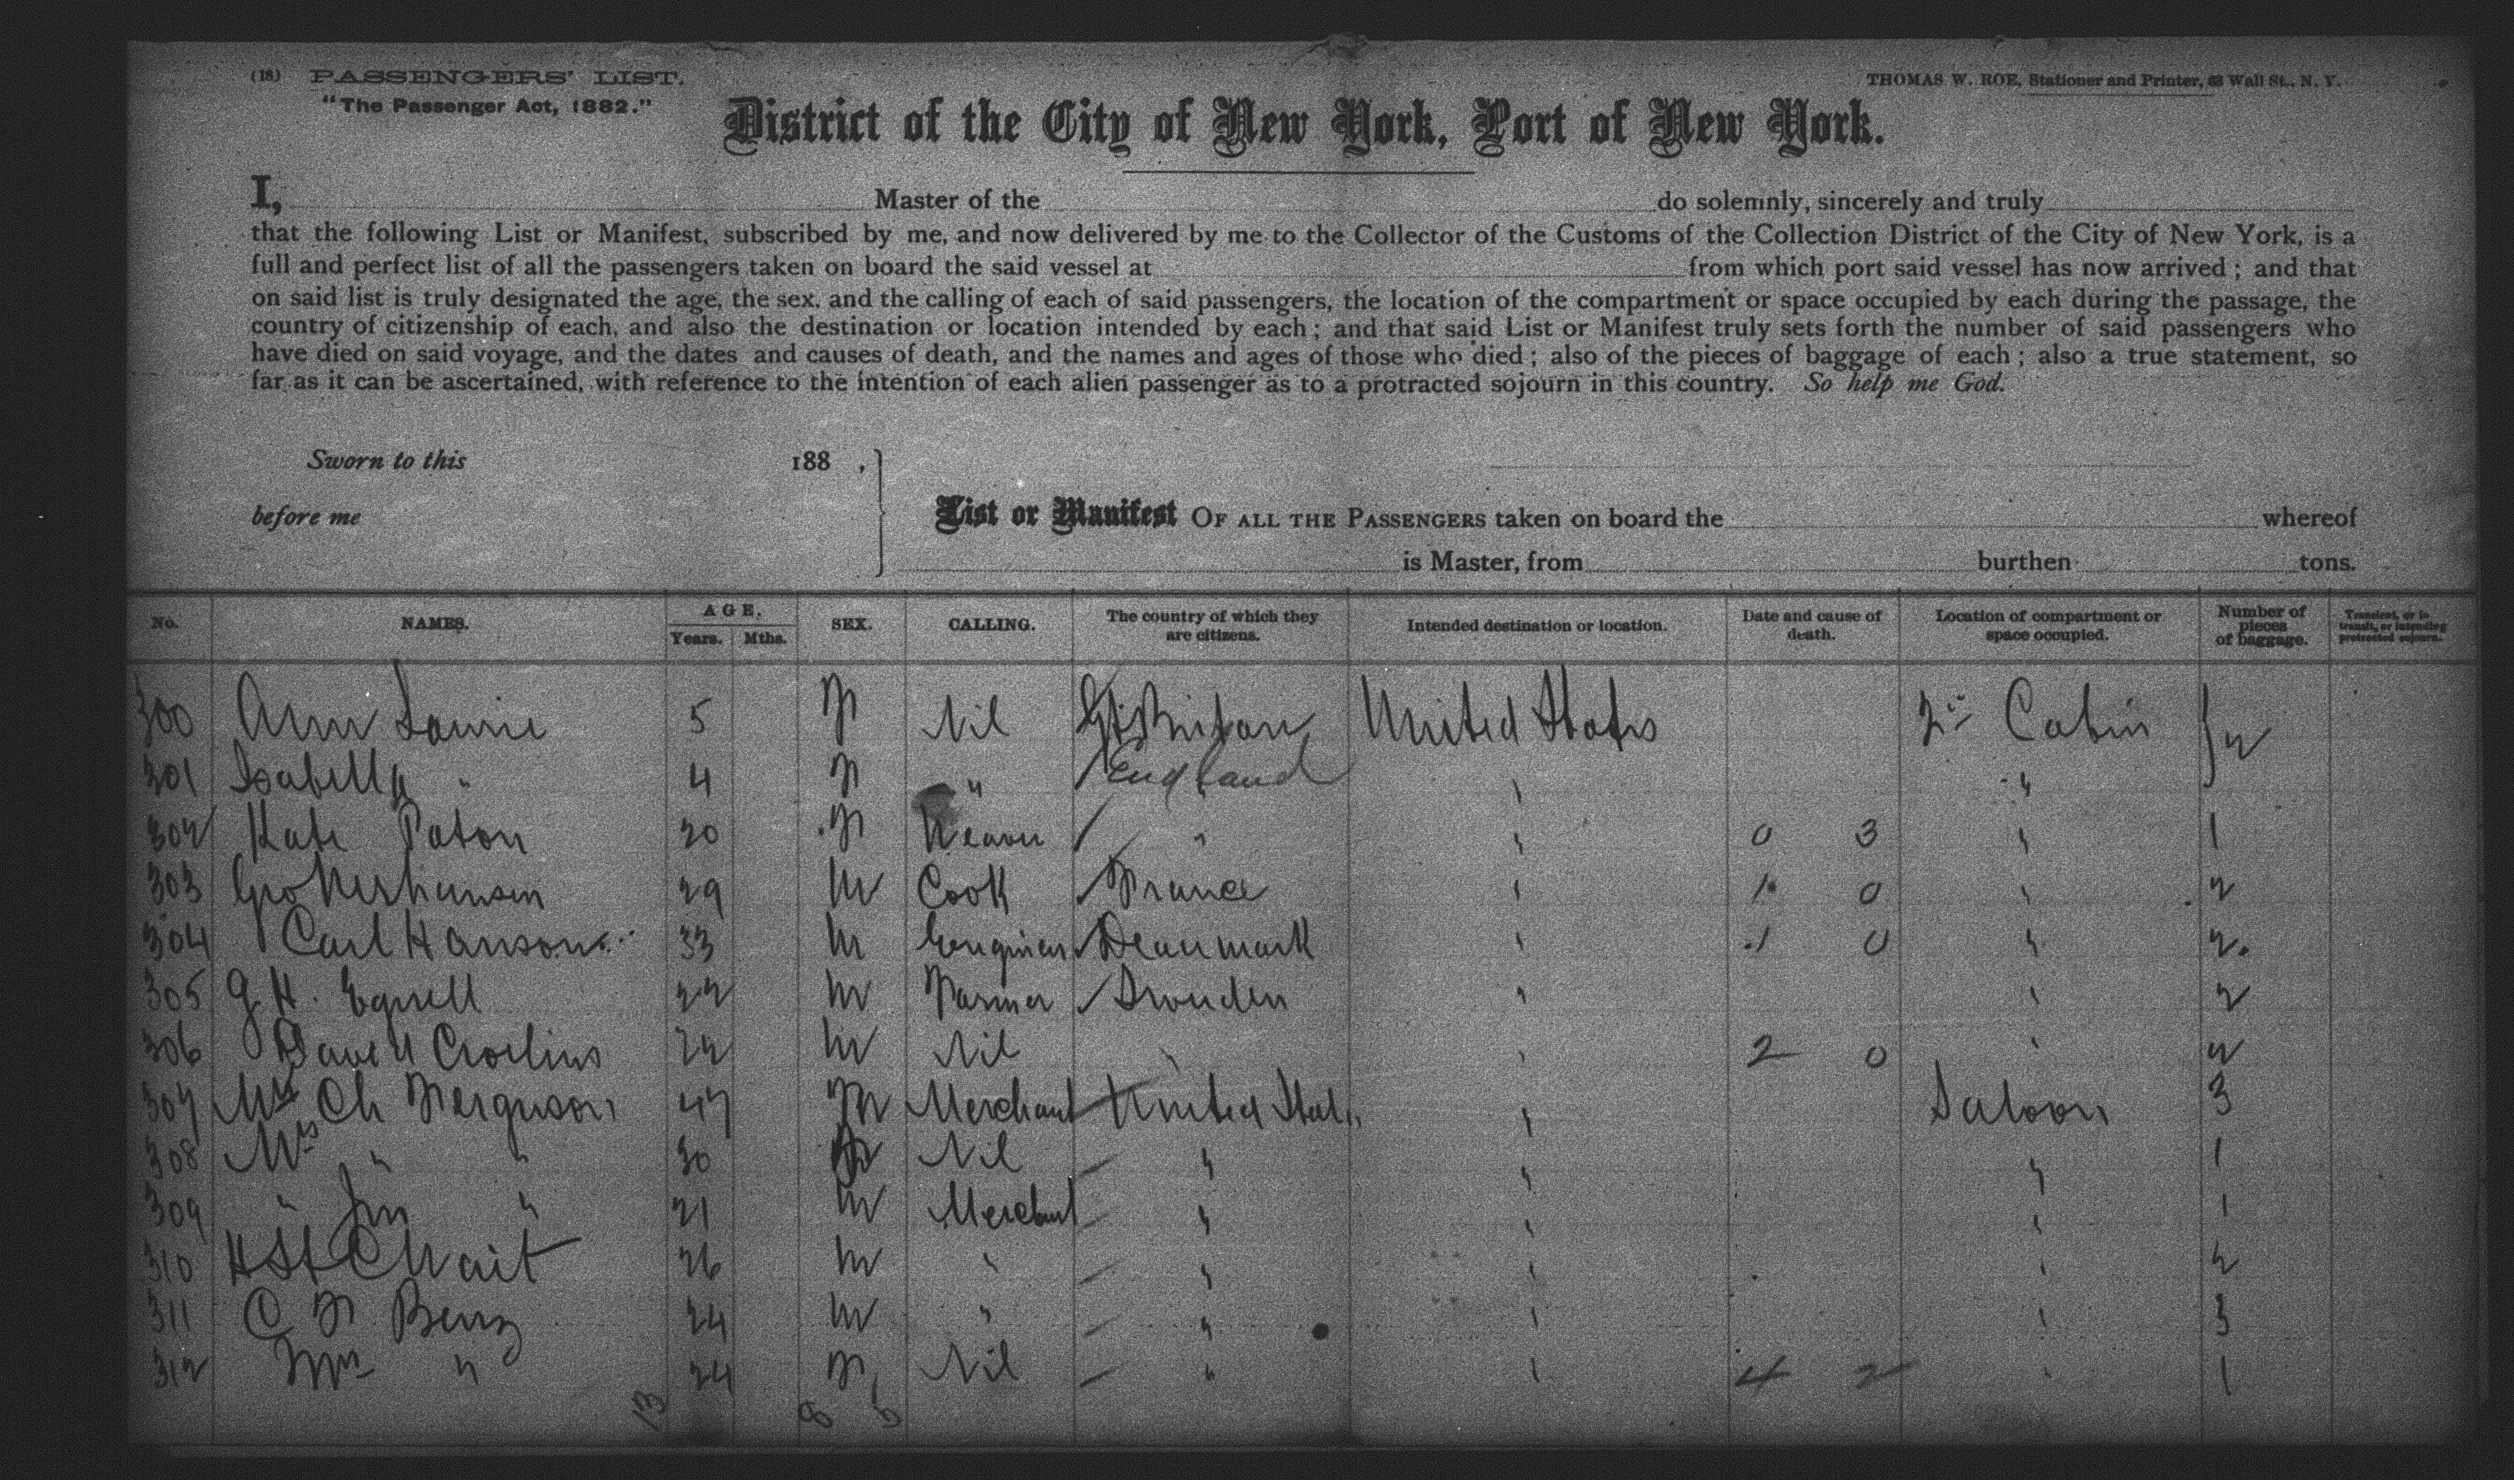 (18) PASSENGERS' LIST.
"The Passenger Act, 1882."
THOMAS W. ROE, Stationer and Printer, 63 Wall St., N. Y.
District of the City of New York, Port of New York.
I, Master of the do solemnly, sincerely and truly
that the following List or Manifest, subscribed by me, and now delivered by me to the Collector of the Customs of the Collection District of the City of New York, is a
full and perfect list of all the passengers taken on board the said vessel at from which port said vessel has now arrived; and that
on said list is truly designated the age, the sex, and the calling of each of said passengers, the location of the compartment or space occupied by each during the passage, the
country of citizenship of each, and also the destination or location intended by each; and that said List or Manifest truly sets forth the number of said passengers who
have died on said voyage, and the dates and causes of death, and the names and ages of those who died; also of the pieces of baggage of each; also a true statement, so
far as it can be ascertained, with reference to the intention of each alien passenger as to a protracted sojourn in this country. So help me God.
Sworn to this 188 ,
before me
List or Manifest OF ALL THE PASSENGERS taken on board the whereof
is Master, from burthen tons.
No. NAMES. AGE. Years. Mths. SEX. CALLING. The country of which they are citizens. Intended destination or location. Date and cause of death. Location of compartment or space occupied. Number of pieces of baggage. Transient, or in transit, or intending protracted sojourn.
300 Ann Laurie 5 F Nil Gt Britain United States 2nd Cabin } 2
301 Isabella " 4 F " England " "
302 Kate Paton 20 F Weaver " " 0 3 " 1
303 Geo 29 M Cook France " 1 0 " 2
304 Carl Hanson 33 M Engineer Denmark " 1 0 " 2
305 G H. Egnell 22 M Farmer Sweden " " 2
306 22 M Nil " " 2 0 " 2
307 Mr Ch Ferguson 47 M Merchant United States " Saloon 3
308 Mrs " " 30 F Nil " " " 1
309 " Jnr " 21 M Merchant " " " 1
310 H St C Wait 26 M " " " " 2
311 C F Benz 24 M " " " " 3
312 Mrs " 24 F Nil " " 4 2 " 1
13 8 5